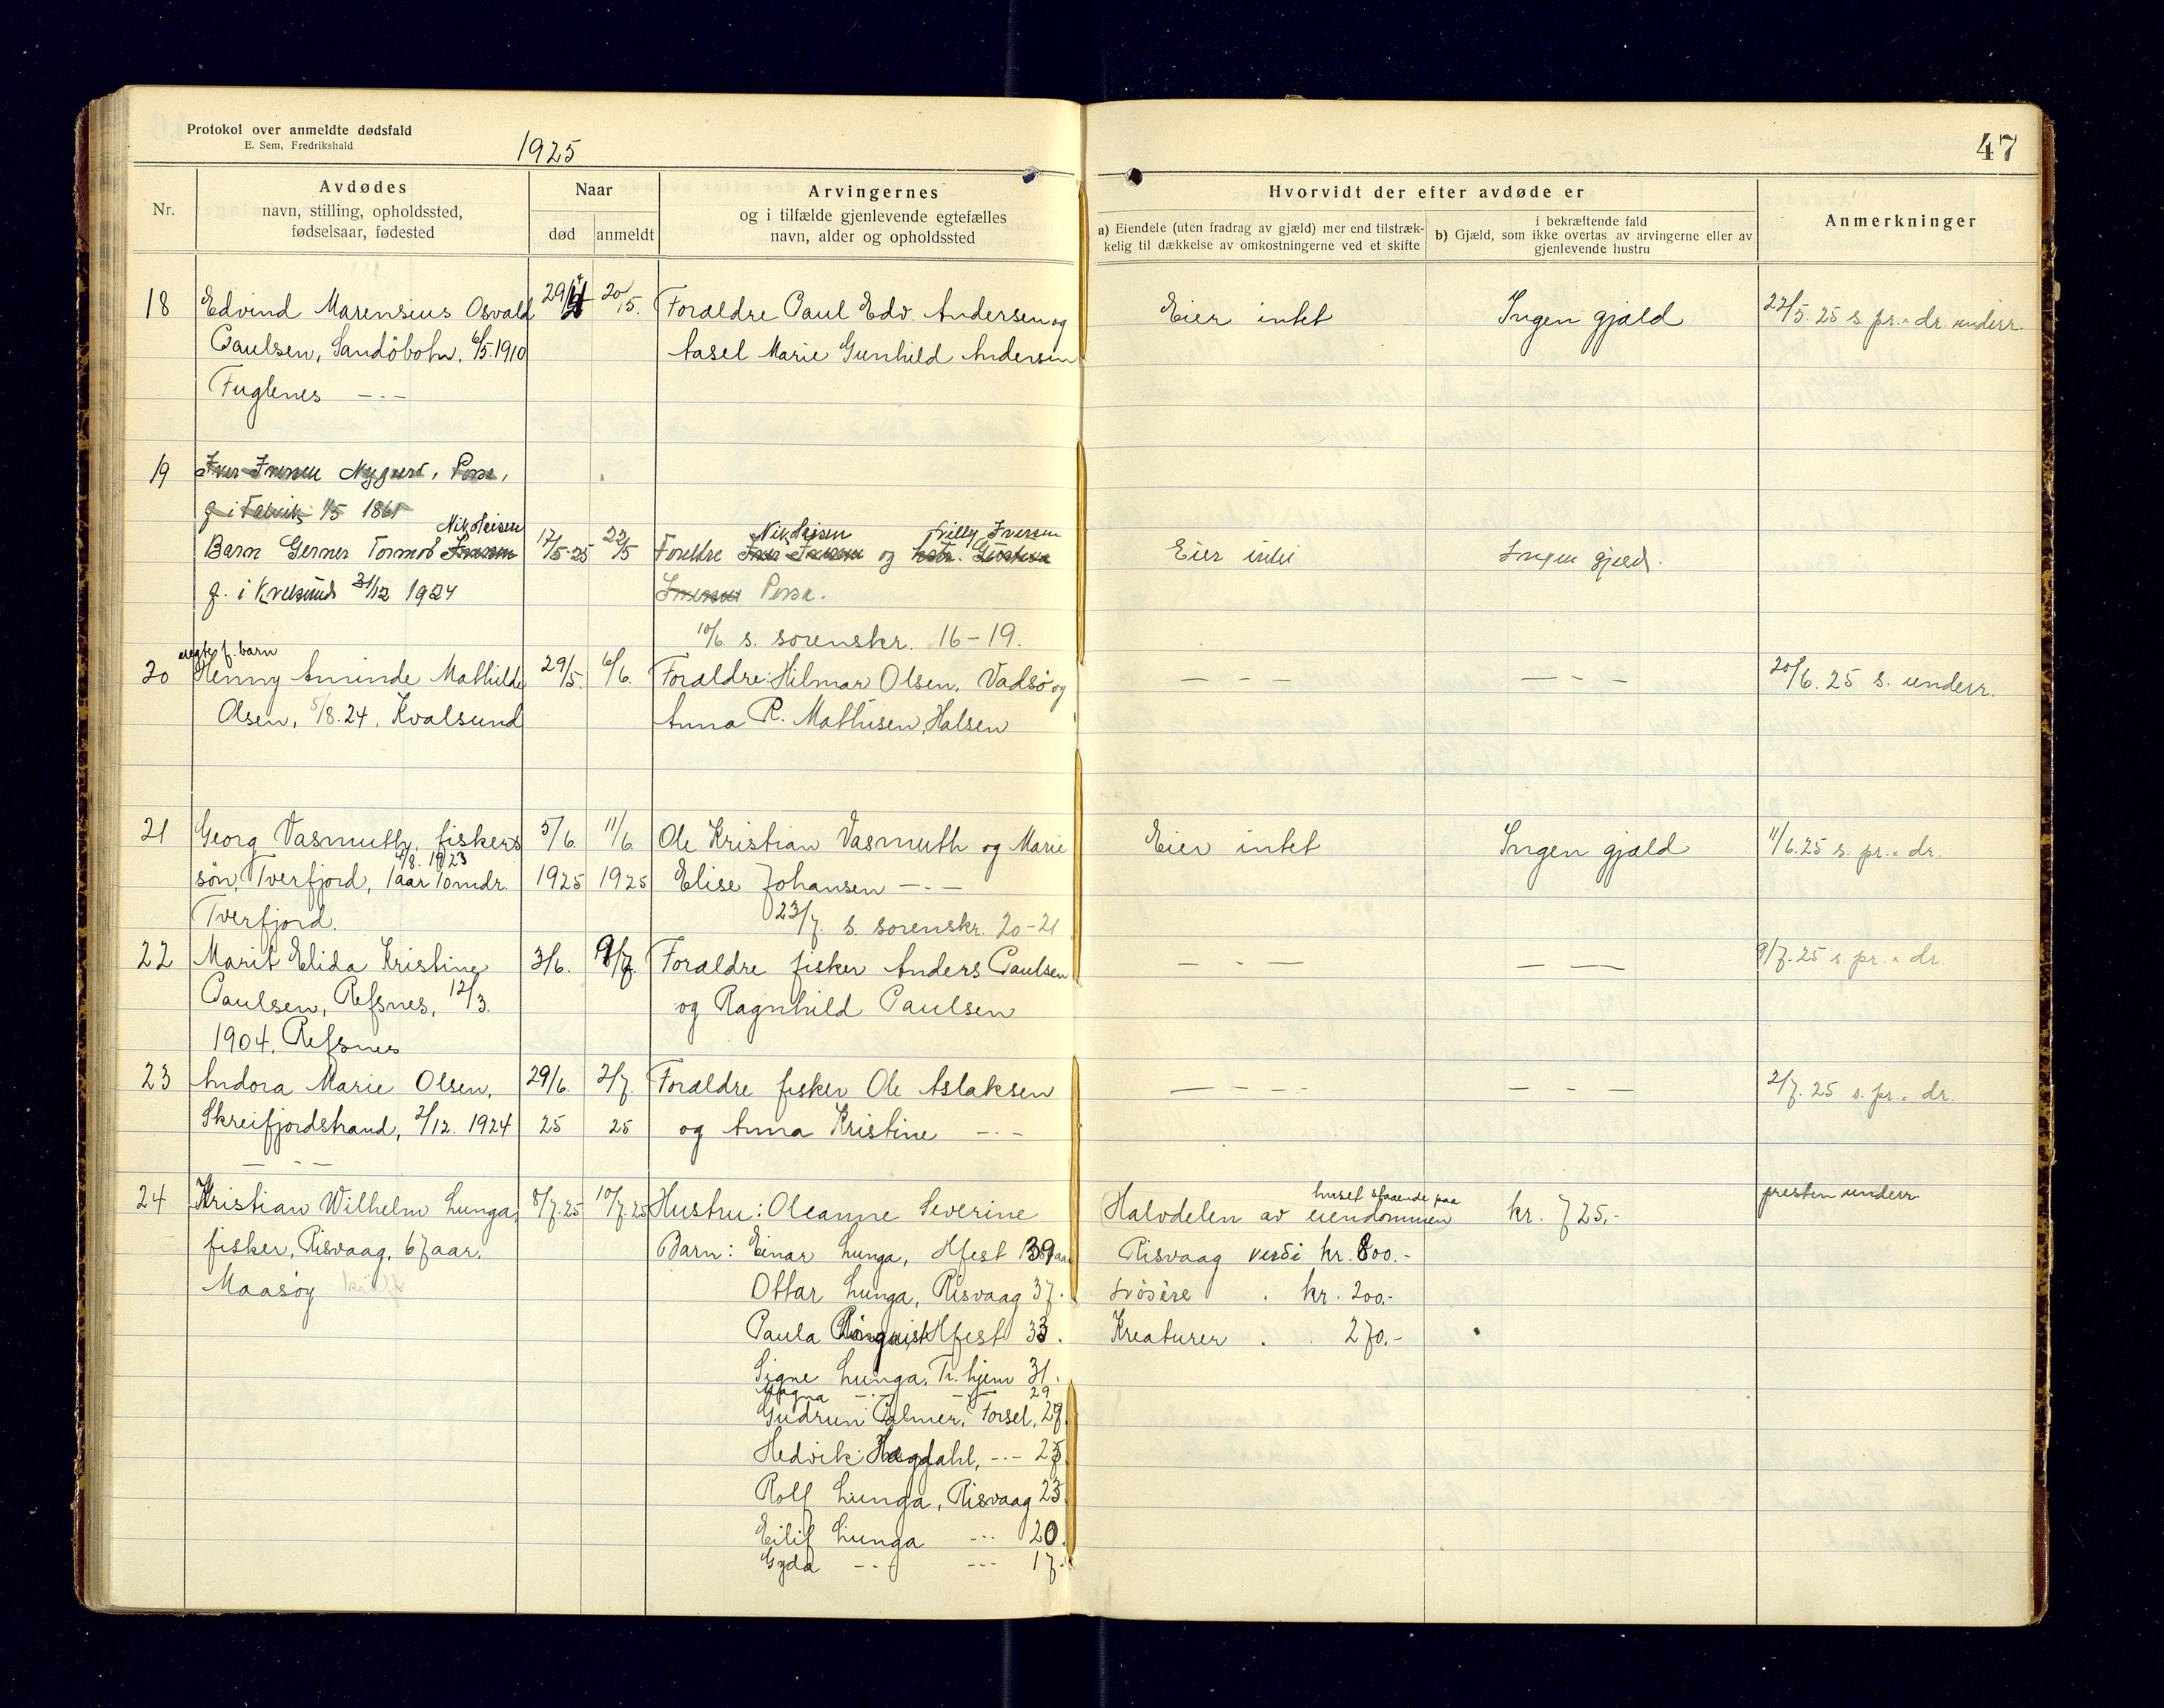 Protokol over anmeldte dødsfald
E. Sem, Fredrikshald
1925
47
Nr.
Avdødes
navn, stilling, opholdssted,
fødselsaar, fødested
Naar
død
anmeldt
Arvingernes
og i tilfælde gjenlevende egtefælles
navn, alder og opholdssted
Hvorvidt der efter avdøde er
a) Eiendele (uten fradrag av gjæld) mer end tilstræk-
kelig til dækkelse av omkostningerne ved et skifte
i bekræftende fald
b) Gjæld, som ikke overtas av arvingerne eller av
gjenlevende hustru
Anmerkninger
18 Edvind Marensius Osvald 29/4 20/5. Forældre Paul Edv. Andersen og Eier intet Ingen gjæld 22/5. 25 s. pr. " dr. underr.
Paulsen, Sandöbotn, 6/5.1910 Aasel Marie Gunhild Andersen
Fuglenes -"-
19 Iver Iversen Nygaard, Porsa,
f. i Talvik 1/5 1861
Nikolaisen Nikolaisen Lilly Iversen
Barn Germer Tormod Iversen 17/5-25 22/5 Foreldre Iver Iversen og hstr. Gustava Eier intet Ingen gjæld.
f. i Kvalsund 31/12 1924 Iversen Porsa.
10/6 s. sorenskr. 16-19.
uegte f. barn
20 Henny Aminde Mathilde 29/5. 6/6. Forældre: Hilmar Olsen, Vadsö og — " — — " — 20/6. 25 s. underr.
Olsen, 5/8.24, Kvalsund Anna P. Mathisen, Halsen
21 Georg Vasmuth, fiskers 5/6. 11/6. Ole Kristian Vasmuth og Marie Eier intet Ingen gjæld 11/6.25 s. pr. " dr.
/8. 1923
sön, Tverfjord, 1 aar 10 mdr. 1925 1925 Elise Johansen -"-
Tverfjord. 23/7. s. sorenskr. 20-21
22 Marit Elida Kristine 3/6. 9/7. Forældre fisker Anders Paulsen — " — — — 9/7.25 s. pr. " dr.
Paulsen, Refsnes, 12/3. og Ragnhild Paulsen
1904, Refsnes
23 Andora Marie Olsen, 29/6. 2/7. Forældre fisker Ole Aslaksen — " — — " — 2/7. 25 s. pr. " dr.
Skreifjordstrand, 2/12. 1924 25 25 og Anna Kristine -"-
— " —
24 Kristian Wilhelm Lunga, 8/7.25 10/7.25 Hustru: Oleanne Severine Halvdelen av eiendommen huset staaende paa kr. 725,- presten underr.
fisker, Risvaag, 67 aar, Barn: Einar Lunga, Hfest 39 aar Risvaag verdi kr. 800.-
Maasöy Ottar Lunga, Risvaag 37. kr. 200.-
Paula Hfest 33. Kreaturer . . 270.-
Signe Lunga, Tr. hjem 31.
Magna -"- -"- 29
Gudrun Palmer, Forsöl,
Hedvik Hagdahl, -"- 25
Rolf Lunga, Risvaag 23.
Eilif Lunga -"- 20.
Gyda -"- -"- 17.